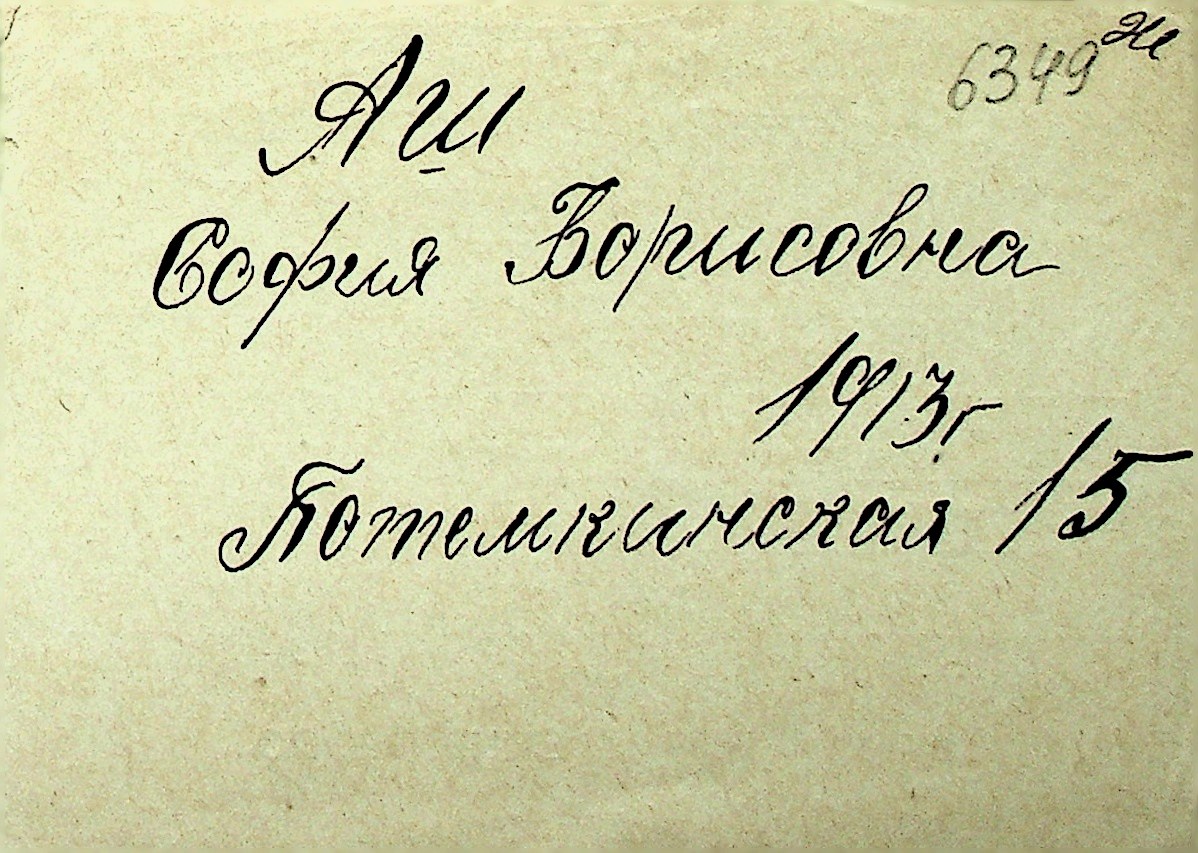 6349 ж
Аш
София Борисовна
1913г.
Потемкинская 15